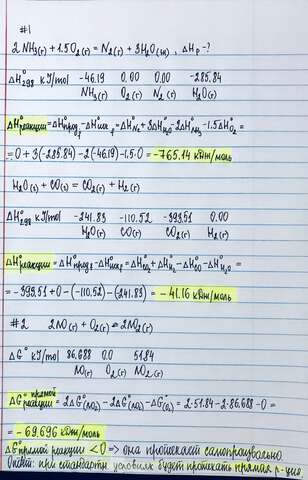 #1
2NH₃(г) + 1.5O₂(г) = N₂(г) + 3H₂O(ж) , ΔHр - ?
ΔH°₂₉₈ кЈ/mol -46.19 0.00 0.00 -285.84
NH₃(г) O₂(г) N₂(г) H₂O(г)
ΔH°реакции = ΔH°прод - ΔH°исх = ΔH°N₂ + 3ΔH°H₂O - 2ΔH°NH₃ - 1.5ΔH°O₂ =
= 0 + 3(-285.84) - 2(-46.19) - 1.5·0 = -765.14 кДж/моль
H₂O(г) + CO(г) = CO₂(г) + H₂(г)
ΔH°₂₉₈ кЈ/mol -241.83 -110.52 -393.51 0.00
H₂O(г) CO(г) CO₂(г) H₂(г)
ΔH°реакции = ΔH°прод - ΔH°исх = ΔH°CO₂ + ΔH°H₂ - ΔH°CO - ΔH°H₂O =
= -393.51 + 0 - (-110.52) - (-241.83) = -41.16 кДж/моль
#2 2NO(г) + O₂(г) = 2NO₂(г)
ΔG° кЈ/mol 86.688 0.0 51.84
NO(г) O₂(г) NO₂(г)
ΔG° прямой реакции = 2ΔG°(NO₂) - 2ΔG°(NO) - ΔG°(O₂) = 2·51.84 - 2·86.688 - 0 =
= -69.696 кДж/моль
ΔG° прямой реакции < 0 => она протекает самопроизвольно
Ответ: при стандартн. условиях будет протекать прямая р-ция.